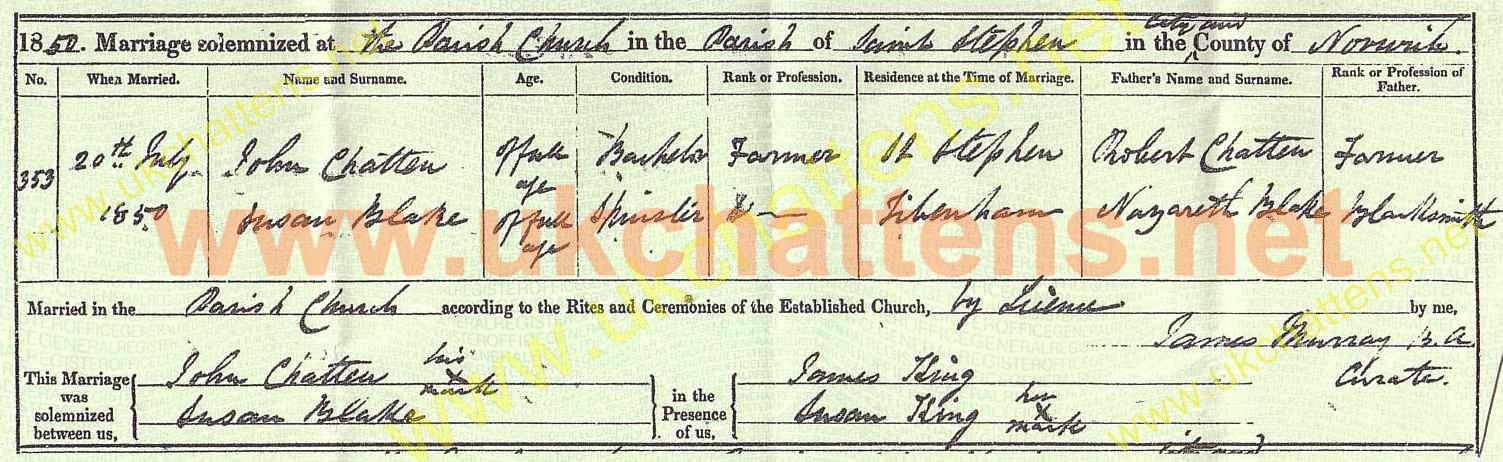 1850. Marriage solemnized at the Parish Church in the Parish of Saint Stephen in the City and County of Norwich.
No. When Married. Name and Surname. Age. Condition. Rank or Profession. Residence at the Time of Marriage. Father's Name and Surname. Rank or Profession of Father.
353 20th July 1850 John Chatten of full age Bachelor Farmer St Stephen Robert Chatten Farmer
Susan Blake of full age Spinster — Tibenham Nazareth Blake Blacksmith
Married in the Parish Church according to the Rites and Ceremonies of the Established Church, by Licence by me,
James Murray B.A.
Curate.
This Marriage was solemnized between us, John Chatten his x mark in the Presence of us, James King
Susan Blake Susan King her x mark
www.ukchattens.net